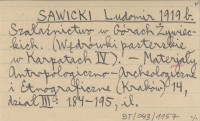 SAWICKI Ludomir 1919 b.
Szałaśnictwo w Górach Żywiec-
kich. (Wędrówki pasterskie
w Karpatach IV). — Materjały
Antropologiczno-Archeologiczne
i Etnograficzne (Kraków) 14,
dział III: 184-195, il.
BT/043/1157